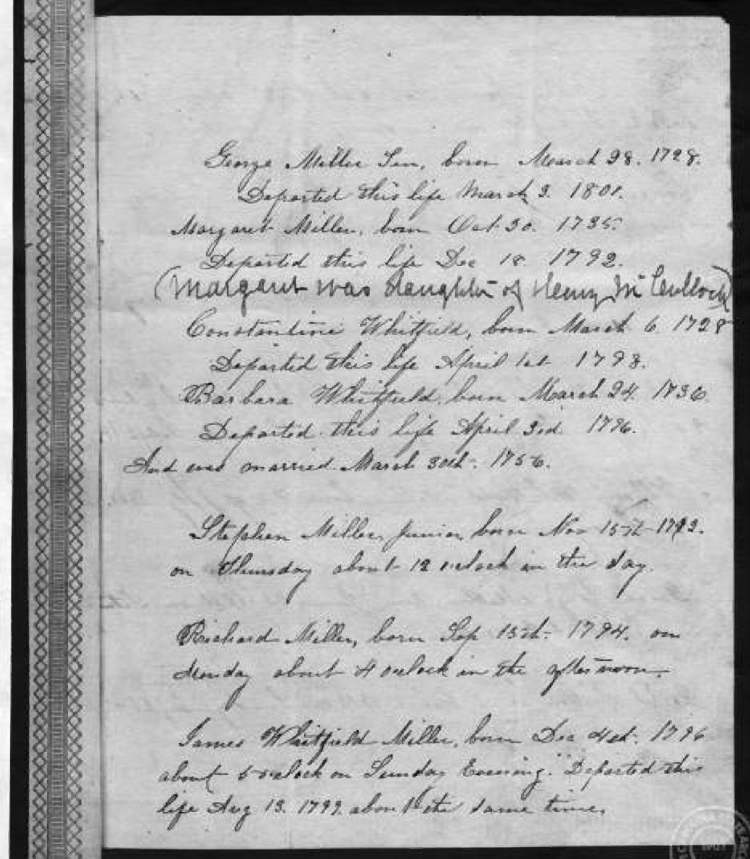 George Miller Sen, born March 28. 1728.
Departed this life March 2. 1801.
Margaret Miller, born Oct 30. 1735.
Departed this life Dec 18. 1792.
(Margaret was daughter of Henry McCulloch)
Constantine Whitfield, born March 6. 1728
Departed this life April 1st 1798.
Barbara Whitfield, born March 24. 1736.
Departed this life April 3rd 1796.
And was married March 30th. 1756.
Stephen Miller, junior, born Nov 15th 1792.
on Thursday about 12 o'clock in the day.
Richard Miller, born Sep 15th. 1794. on
Monday about 4 o'clock in the afternoon.
James Whitfield Miller, born Dec 4th. 1796
about 5 o'clock on Sunday Evening. Departed this
life Aug 13. 1799. about the same time.